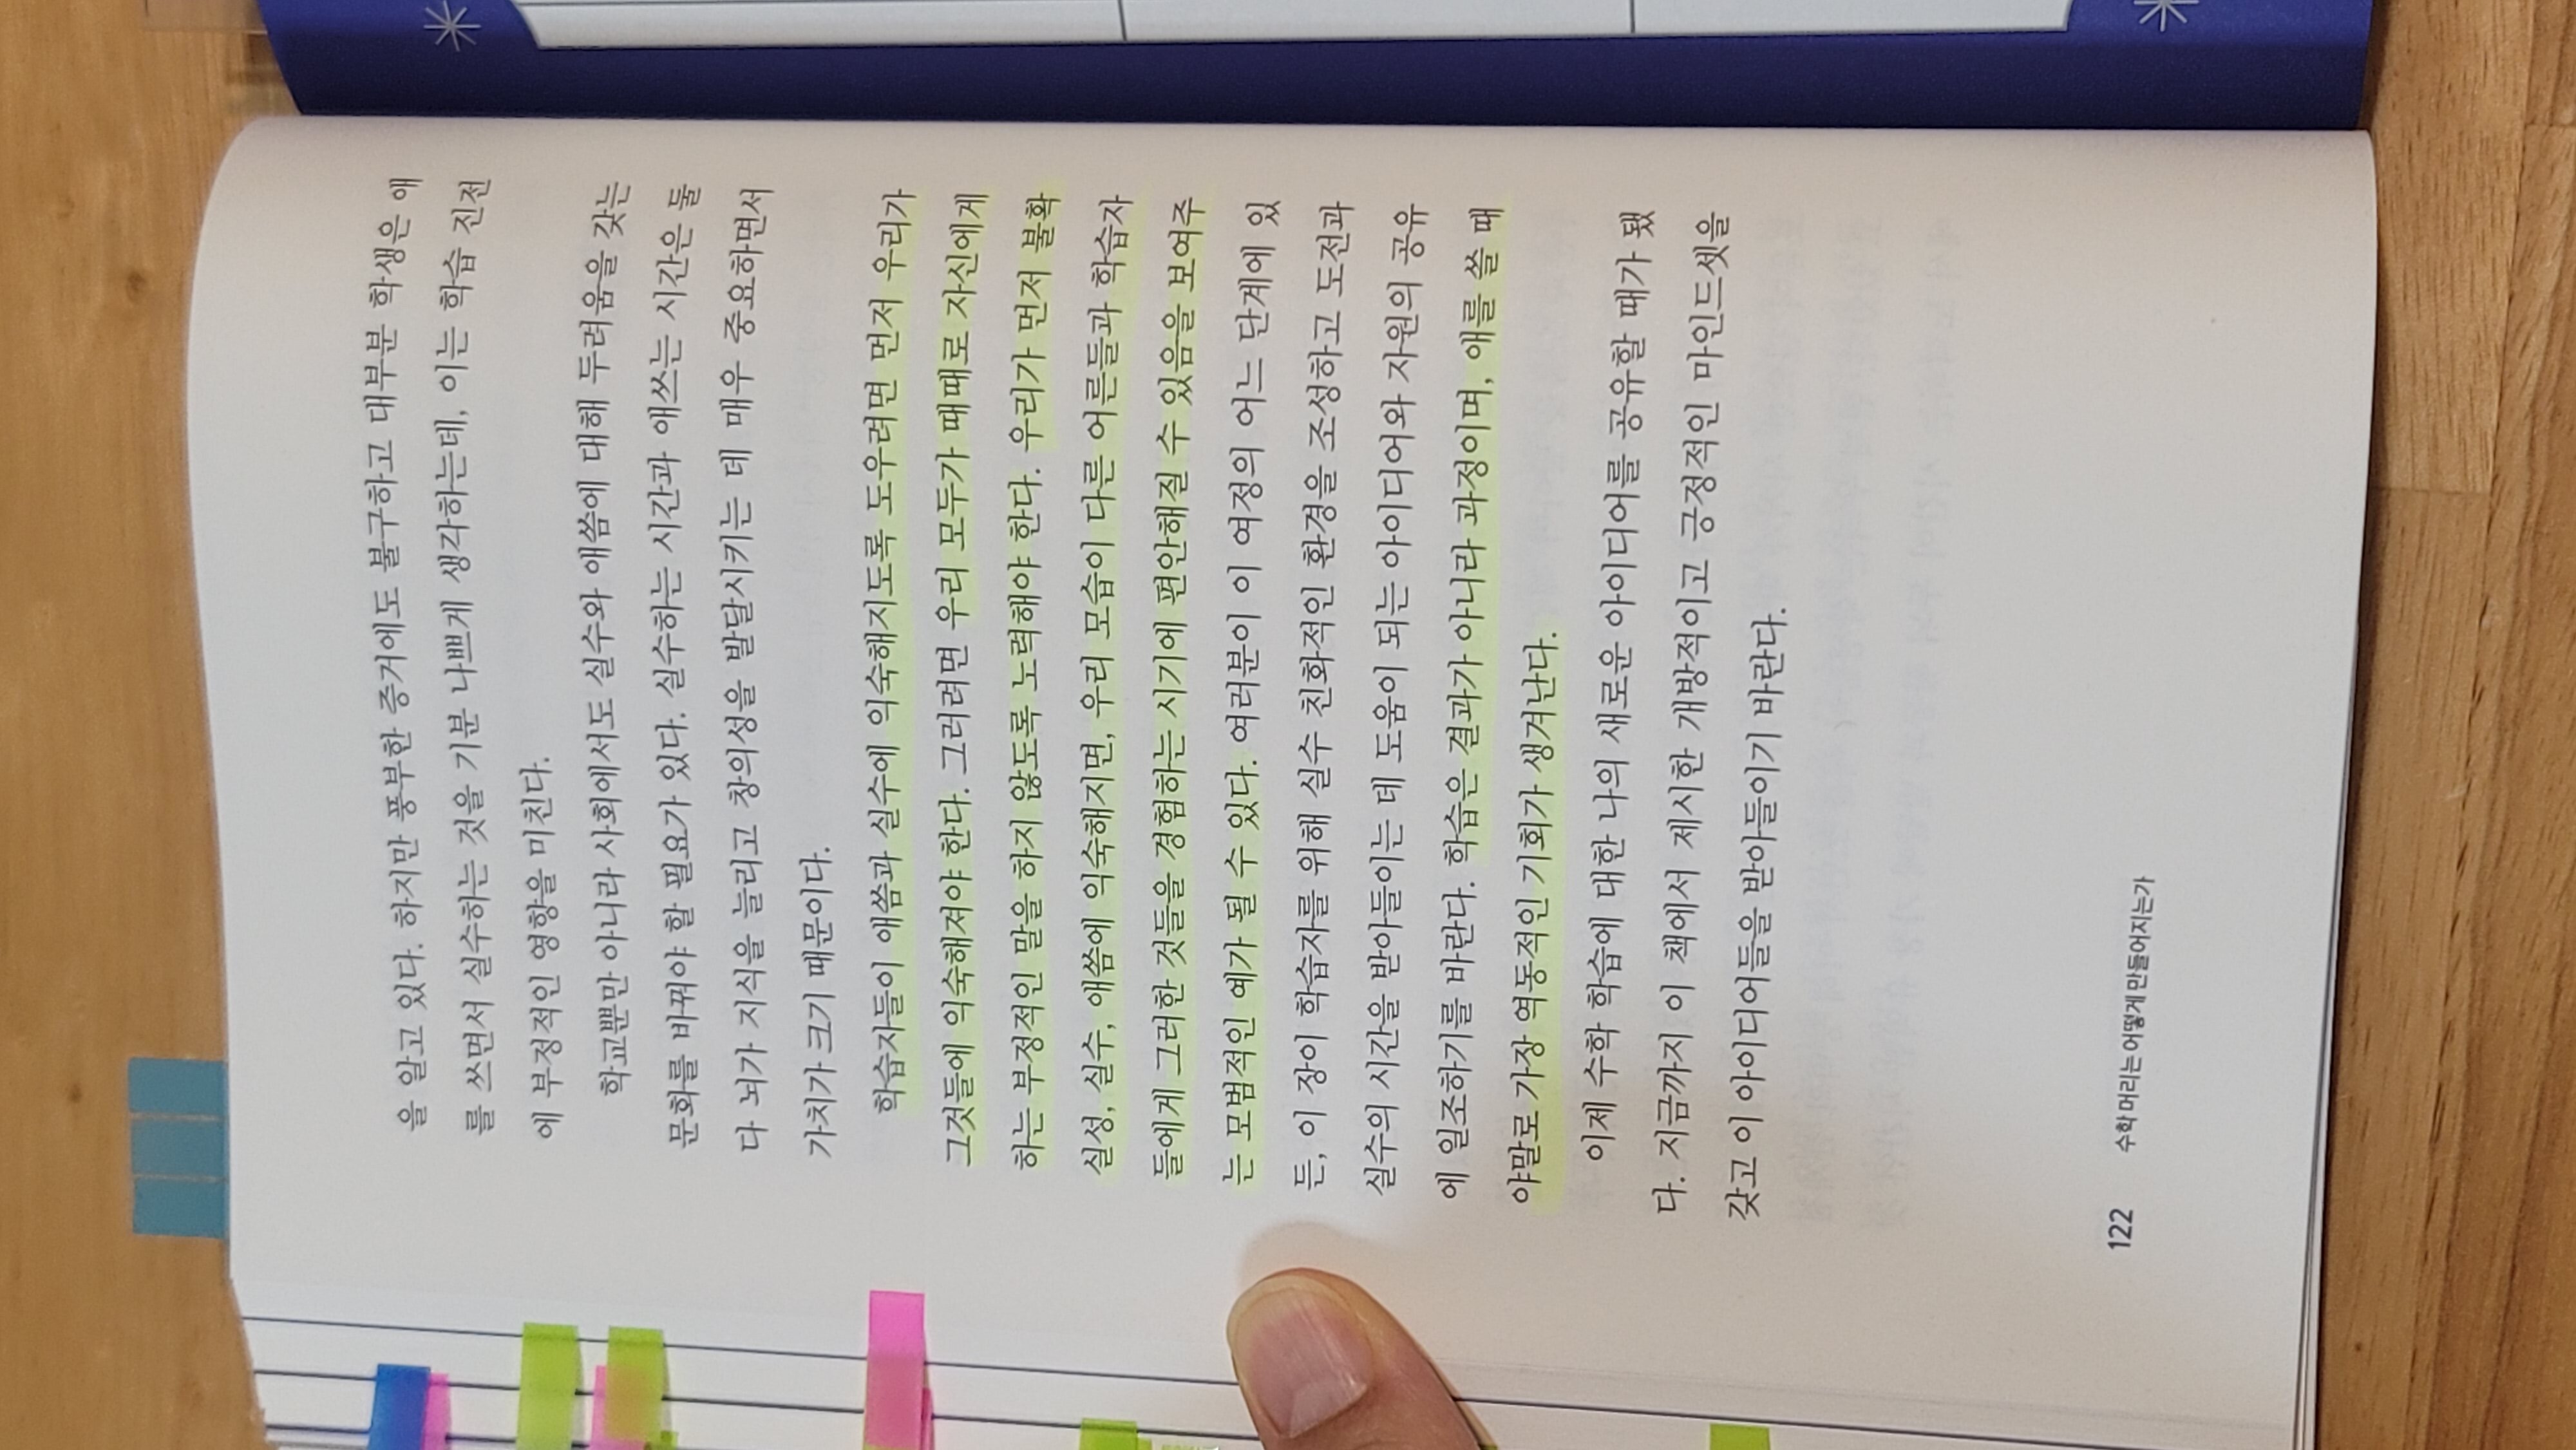 을 알고 있다. 하지만 풍부한 증거에도 불구하고 대부분 학생은 애
를 쓰면서 실수하는 것을 기분 나쁘게 생각하는데, 이는 학습 진전
에 부정적인 영향을 미친다.
학교뿐만 아니라 사회에서도 실수와 애씀에 대해 두려움을 갖는
문화를 바꿔야 할 필요가 있다. 실수하는 시간과 애쓰는 시간은 둘
다 뇌가 지식을 늘리고 창의성을 발달시키는 데 매우 중요하면서
가치가 크기 때문이다.
학습자들이 애씀과 실수에 익숙해지도록 도우려면 먼저 우리가
그것들에 익숙해져야 한다. 그러려면 우리 모두가 때때로 자신에게
하는 부정적인 말을 하지 않도록 노력해야 한다. 우리가 먼저 불확
실성, 실수, 애씀에 익숙해지면, 우리 모습이 다른 어른들과 학습자
들에게 그러한 것들을 경험하는 시기에 편안해질 수 있음을 보여주
는 모범적인 예가 될 수 있다. 여러분이 이 여정의 어느 단계에 있
든, 이 장이 학습자를 위해 실수 친화적인 환경을 조성하고 도전과
실수의 시간을 받아들이는 데 도움이 되는 아이디어와 자원의 공유
에 일조하기를 바란다. 학습은 결과가 아니라 과정이며, 애를 쓸 때
야말로 가장 역동적인 기회가 생겨난다.
이제 수학 학습에 대한 나의 새로운 아이디어를 공유할 때가 됐
다. 지금까지 이 책에서 제시한 개방적이고 긍정적인 마인드셋을
갖고 이 아이디어들을 받아들이기 바란다.
122 수학 머리는 어떻게 만들어지는가